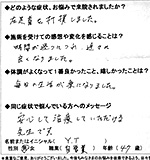 ●どのような症状、お悩みで来院されましたか?
左足首を打撲しました。
●施術を受けての感想や変化を感じることは?
時間が経つにつれ、速さが
良くなりました。
●体調がよくなって1番良かったこと、嬉しかったことは?
毎日の生活が楽になりました。
●同じ症状で悩んでいる方へのメッセージ
安心して治療していただける
先生です。
名前またはイニシャル( Y.T )
性別 男・女 職業( 自営業 )年齢( 47 歳)